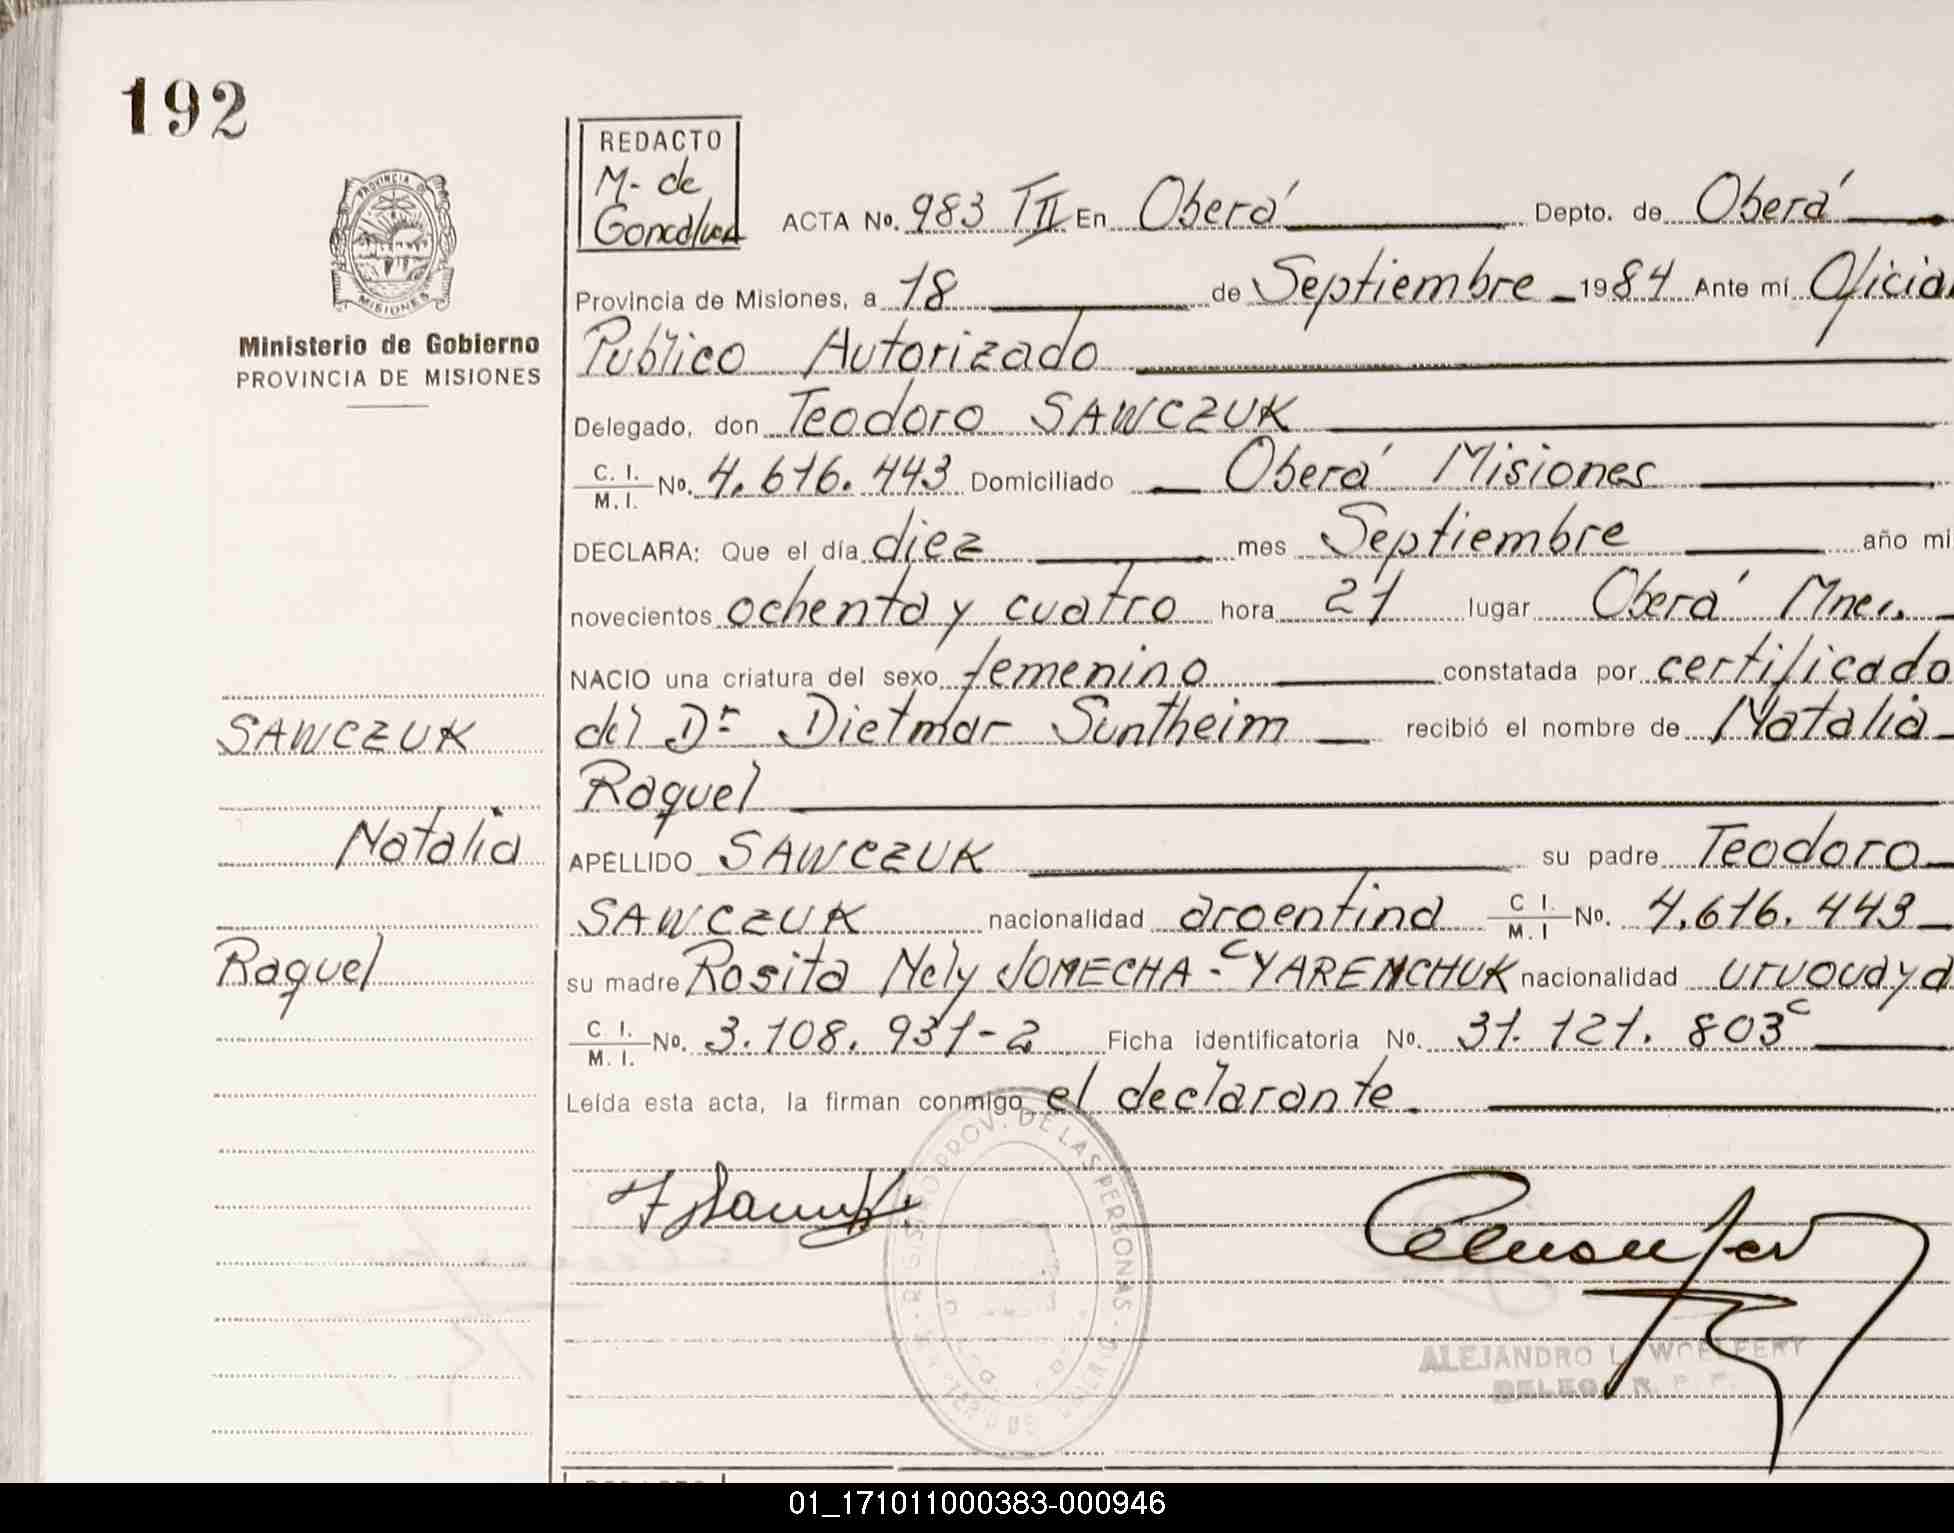 192
REDACTO
M. de
Goncalves
PROVINCIA DE
MISIONES
Ministerio de Gobierno
PROVINCIA DE MISIONES
ACTA No. 983 TII En Oberá Depto. de Oberá
Provincia de Misiones, a 18 de Septiembre 1984 Ante mí Oficial
Público Autorizado
Delegado, don Teodoro SAWCZUK
C. I. / M. I. No. 4.616.443 Domiciliado Oberá Misiones
DECLARA: Que el día diez mes Septiembre año mi
novecientos ochenta y cuatro hora 21 lugar Oberá Mnes.
NACIO una criatura del sexo femenino constatada por certificado
del Dr Dietmar Suntheim recibió el nombre de Natalia
Raquel
APELLIDO SAWCZUK su padre Teodoro
SAWCZUK nacionalidad argentina C I. / M. I No. 4.616.443
su madre Rosita Nely JOMECHA - YAREMCHUK nacionalidad uruguaya
C I. / M. I. No. 3.108.931-2 Ficha identificatoria No. 31.121.803
Leída esta acta, la firman conmigo el declarante.
SAWCZUK
Natalia
Raquel
REGISTRO PROV. DE LAS PERSONAS
ALEJANDRO L.
01_171011000383-000946